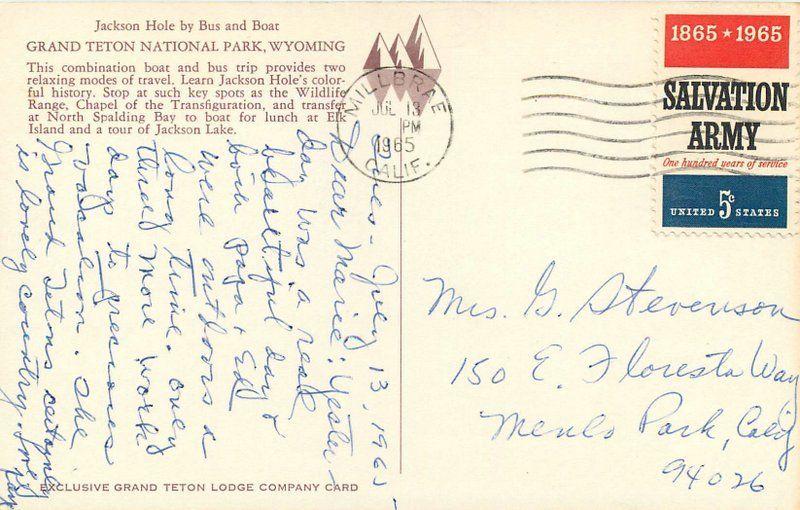 Jackson Hole by Bus and Boat
GRAND TETON NATIONAL PARK, WYOMING
This combination boat and bus trip provides two
relaxing modes of travel. Learn Jackson Hole's color-
ful history. Stop at such key spots as the Wildlife
Range, Chapel of the Transfiguration, and transfer
at North Spalding Bay to boat for lunch at Elk
Island and a tour of Jackson Lake.
MILLBRAE
JUL 13
PM
1965
CALIF.
1865 ★ 1965
SALVATION
ARMY
One hundred years of service
5c
UNITED STATES
Tues- July 13, 1965
Dear Marie: Yester-
day was a real
beautiful day &
both Papa & Ed
were outdoors a
long time. Only
three more work
days to precious
vacation. The
Grand Tetons certainly
is lovely country. Love,
Mrs. G. Stevenson
150 E. Floresta Way
Menlo Park, Calif
94026
EXCLUSIVE GRAND TETON LODGE COMPANY CARD